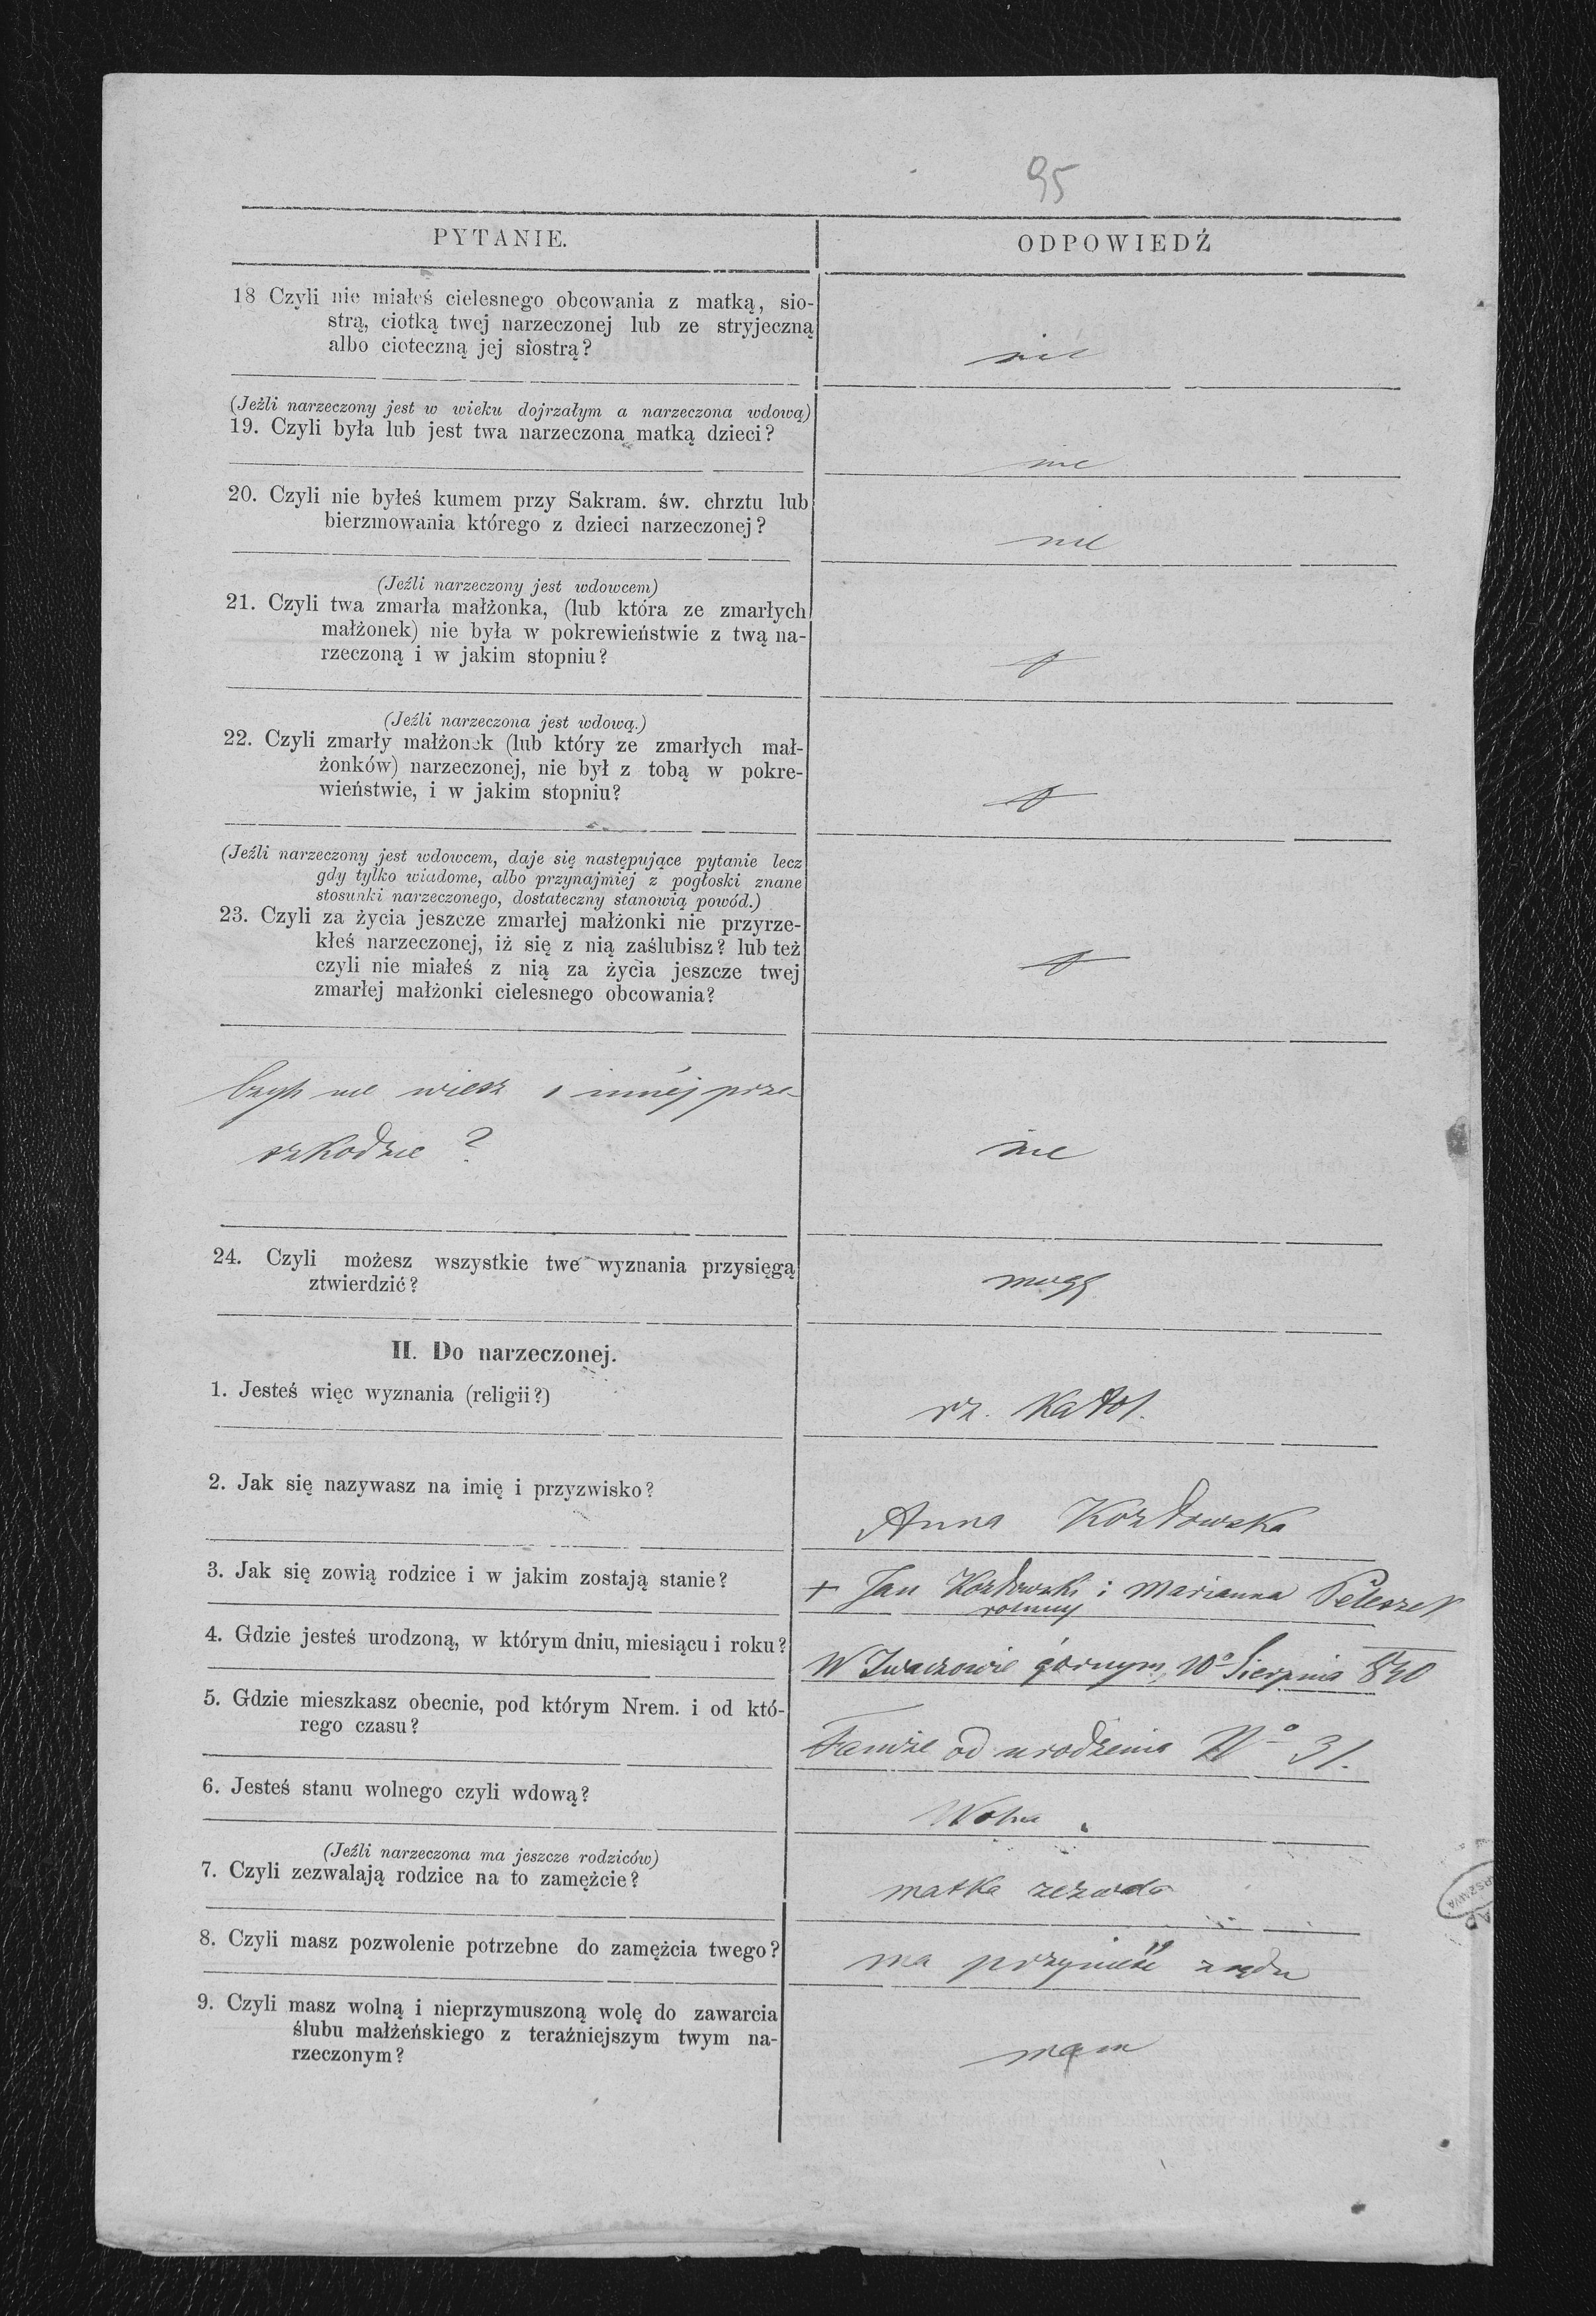 95
PYTANIE.
ODPOWIEDŹ
18 Czyli nie miałeś cielesnego obcowania z matką, sio-
strą, ciotką twej narzeczonej lub ze stryjeczną
albo cioteczną jej siostrą?
nie
(Jeżli narzeczony jest w wieku dojrzałym a narzeczona wdową)
19. Czyli była lub jest twa narzeczona matką dzieci?
nie
20. Czyli nie byłeś kumem przy Sakram. św. chrztu lub
bierzmowania którego z dzieci narzeczonej?
nie
(Jeźli narzeczony jest wdowcem)
21. Czyli twa zmarła małżonka, (lub która ze zmarłych
małżonek) nie była w pokrewieństwie z twą na-
rzeczoną i w jakim stopniu?
(Jeźli narzeczona jest wdową.)
22. Czyli zmarły małżonek (lub który ze zmarłych mał-
żonków) narzeczonej, nie był z tobą w pokre-
wieństwie, i w jakim stopniu?
(Jeźli narzeczony jest wdowcem, daje się następujące pytanie lecz
gdy tylko wiadome, albo przynajmiej z pogłoski znane
stosunki narzeczonego, dostateczny stanowią powód.)
23. Czyli za życia jeszcze zmarłej małżonki nie przyrze-
kłeś narzeczonej, iż się z nią zaślubisz? lub też
czyli nie miałeś z nią za życia jeszcze twej
zmarłej małżonki cielesnego obcowania?
Czyli nie wiesz o innéj prze-
szkodzie?
nie
24. Czyli możesz wszystkie twe wyznania przysięgą
ztwierdzić?
mogę
II. Do narzeczonej.
1. Jesteś więc wyznania (religii?)
rz. katol.
2. Jak się nazywasz na imię i przyzwisko?
Anna Kozłowska
3. Jak się zowią rodzice i w jakim zostają stanie?
+ Jan Kozłowski i Marianna Peleszek
rolnicy
4. Gdzie jesteś urodzoną, w którym dniu, miesiącu i roku?
W Iwaczowie górnym, 10o Sierpnia 840
5. Gdzie mieszkasz obecnie, pod którym Nrem. i od któ-
rego czasu?
Tamże od urodzenia No 31.
6. Jesteś stanu wolnego czyli wdową?
Wolna.
(Jeźli narzeczona ma jeszcze rodziców)
7. Czyli zezwalają rodzice na to zamężcie?
matka zezwala
8. Czyli masz pozwolenie potrzebne do zamężcia twego?
ma przynieść z sądu
9. Czyli masz wolną i nieprzymuszoną wolę do zawarcia
ślubu małżeńskiego z teraźniejszym twym na-
rzeczonym?
mam